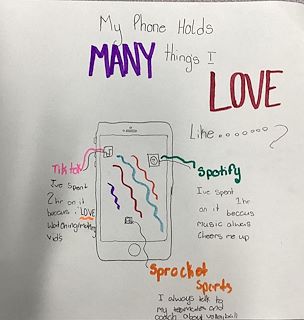 My Phone Holds
MANY things I
LOVE
Like.......?
Tiktok
I've spent
2hr on it
beccus i LOVE
watching/making
vid's
Spotify
I've spent
1hr
on it beccus
music always
cheers me up
Sprocket
Sports
I always talk to
my teammates and
coach about volleyball